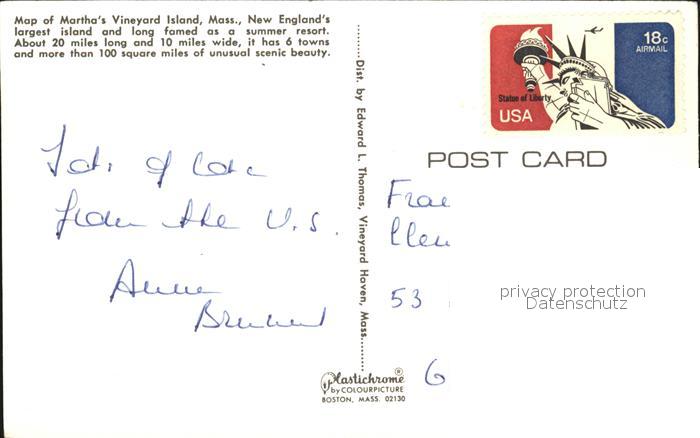 Map of Martha's Vineyard Island, Mass., New England's
largest island and long famed as a summer resort.
About 20 miles long and 10 miles wide, it has 6 towns
and more than 100 square miles of unusual scenic beauty.
18c
AIRMAIL
Statue of Liberty
USA
POST CARD
Dist. by Edward L. Thomas, Vineyard Haven, Mass.
Lots of love
from the U.S.
Anne
Frau
53
privacy protection
Datenschutz
G
Plastichrome®
by COLOURPICTURE
BOSTON, MASS. 02130